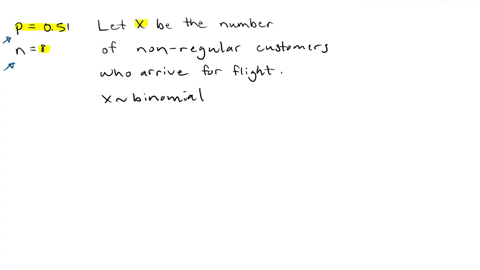 p = 0.51 Let X be the number
n = 8 of non-regular customers
who arrive for flight.
X ~ binomial